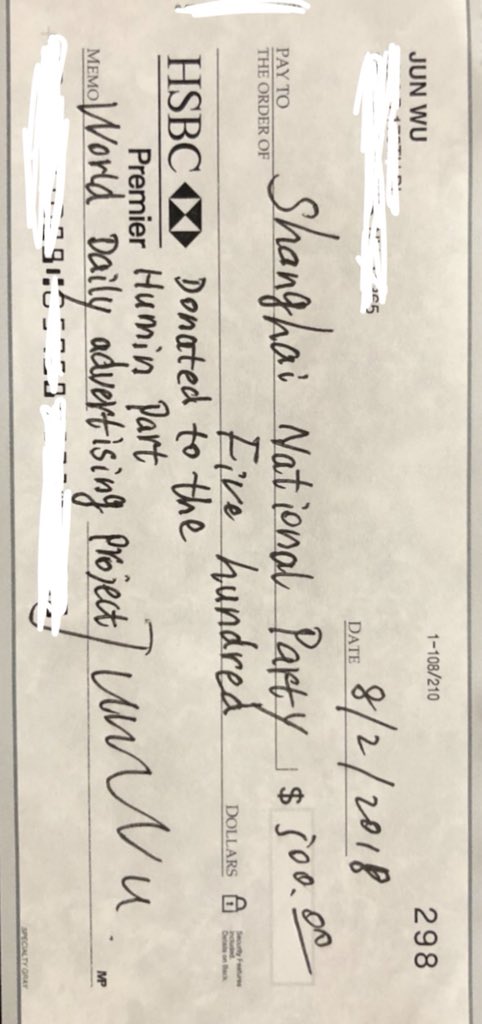 JUN WU
1-108/210
298
DATE 8/2/2018
PAY TO
THE ORDER OF Shanghai National Party $ 500.00
Five hundred DOLLARS
Security Features
Included.
Details on Back.
HSBC Donated to the
Premier Humin Part
MEMO World Daily advertising Project Jun Wu
MP
SPECIALTY GRAY